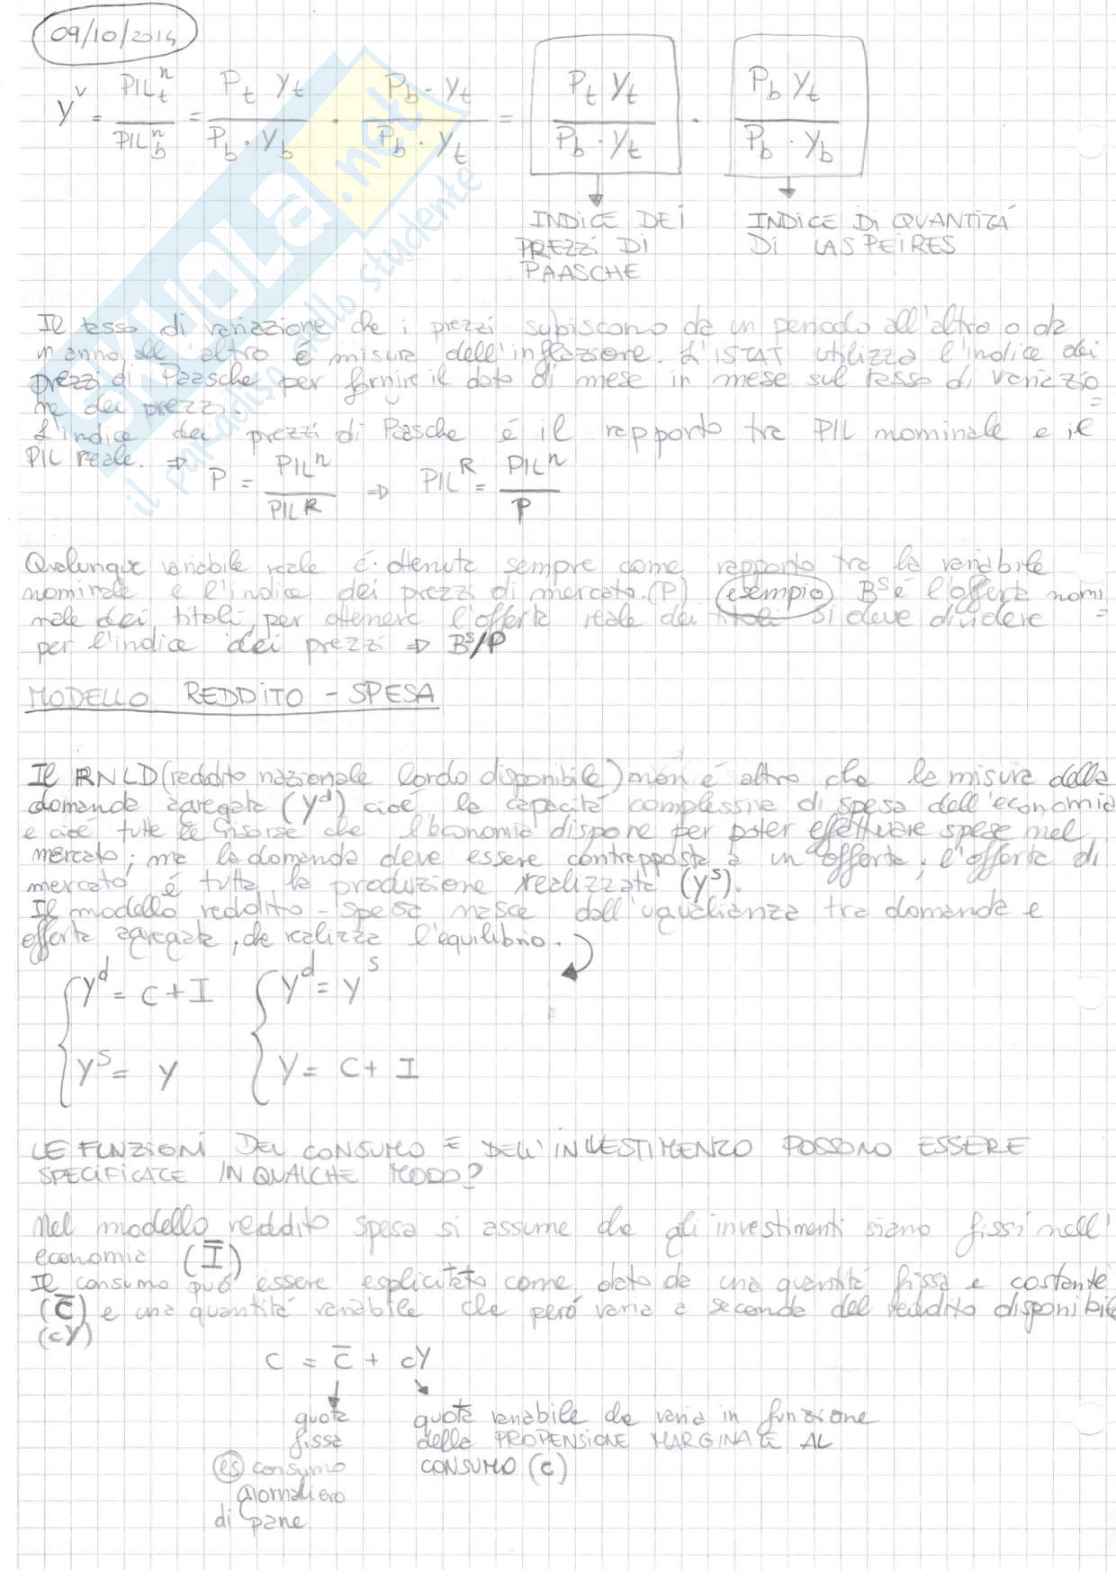 09/10/2014
Y^v = PIL_t^n / PIL_b^n = P_t Y_t / P_b · Y_b · P_b · Y_t / P_b · Y_t = P_t Y_t / P_b · Y_t · P_b Y_t / P_b · Y_b
INDICE DEI PREZZI DI PAASCHE
INDICE DI QUANTITÁ DI LASPEIRES
SKUOLA.net
il paradiso dello studente
Il tasso di variazione che i prezzi subiscono da un periodo all'altro o da
un anno all'altro é misura dell'inflazione. L'ISTAT utilizza l'indice dei
prezzi di Paasche per fornire il dato di mese in mese sul tasso di variazio=
ne dei prezzi.
L'indice dei prezzi di Paasche é il rapporto tra PIL nominale e il
PIL reale. ⇒ P = PIL^n / PIL^R ⇒ PIL^R = PIL^n / P
Qualunque variabile reale é ottenuta sempre come rapporto tra la variabile
nominale e l'indice dei prezzi di mercato (P) esempio B^s é l'offerta nomi=
nale dei titoli, per ottenere l'offerta reale dei titoli si deve dividere
per l'indice dei prezzi ⇒ B^s/P
MODELLO REDDITO - SPESA
Il RNLD (reddito nazionale lordo disponibile) non é altro che la misura della
domanda agregata (Y^d) cioé la capacità complessiva di spesa dell'economia
e cioé tutte le risorse che l'economia dispone per poter effettuare spese nel
mercato; ma la domanda deve essere contrapposta a un'offerta; l'offerta di
mercato é tutta la produzione realizzata (Y^s).
Il modello reddito-spesa nasce dall'uguaglianza tra domanda e
offerta agregata, che realizza l'equilibrio.
{ Y^d = C + I { Y^d = Y^s
Y^s = Y Y = C + I
LE FUNZIONI DEL CONSUMO E DELL'INVESTIMENTO POSSONO ESSERE
SPECIFICATE IN QUALCHE MODO?
Nel modello reddito spesa si assume che gli investimenti siano fissi nell'
economia (Ī)
Il consumo puó essere esplicitato come dato da una quantitá fissa e costante
(C̄) e una quantitá variabile che peró varia a seconda del reddito disponibile
(cY)
C = C̄ + cY
quota fissa
es consumo
giornaliero
di pane
quota variabile che varia in funzione
della PROPENSIONE MARGINALE AL
CONSUMO (c)